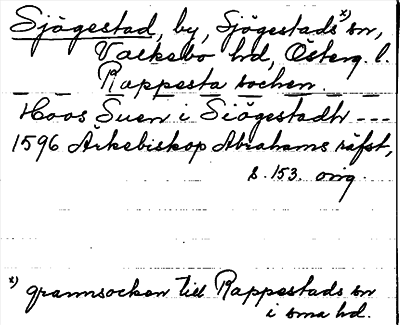 Sjögestad, by, Sjögestads x) sn,
Valkebo hd, Österg. l.
Rappesta socken.
Hoos Suen i Siögestadh ---
1596 Ärkebiskop Abrahams räfst,
s. 153. orig.
x) grannsocken till Rappestads sn
i sma hd.